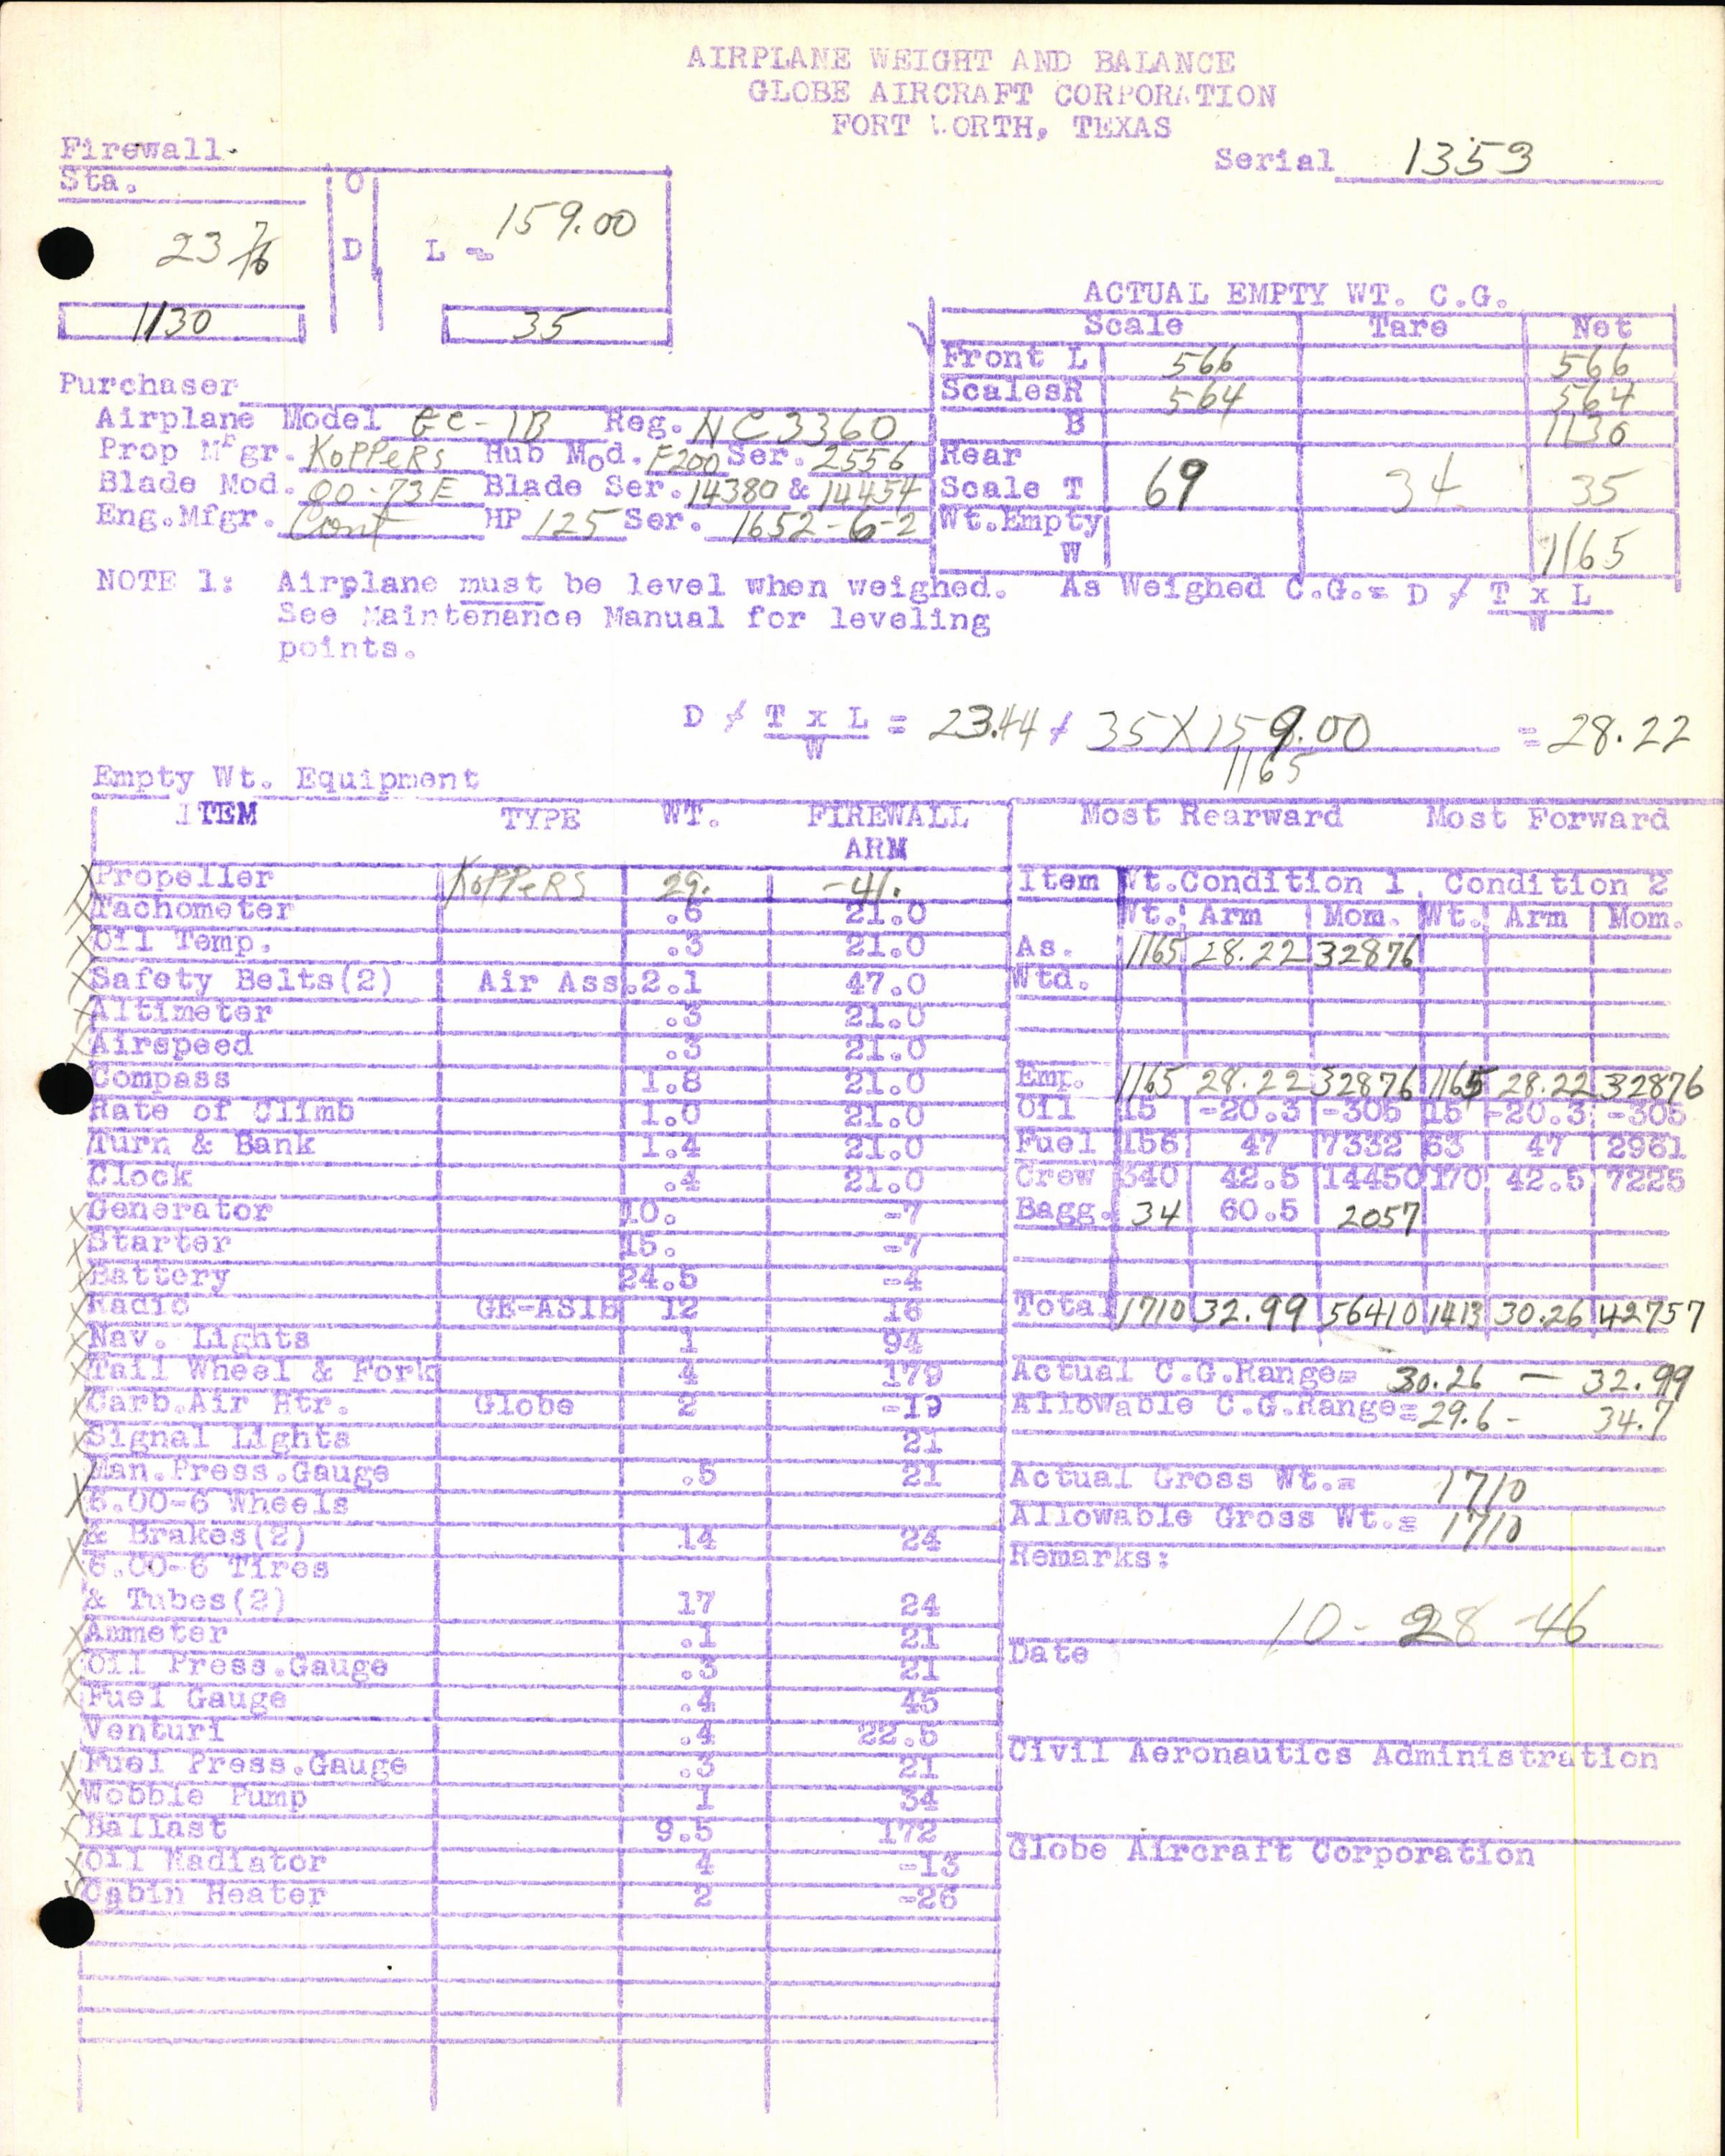 AIRPLANE WEIGHT AND BALANCE
GLOBE AIRCRAFT CORPORATION
FORT WORTH, TEXAS
Serial 1353
Firewall
Sta. O
23 7/16 D L = 159.00
1130 35
ACTUAL EMPTY WT. C.G.
Scale Tare Net
Front L 566 566
Scales R 564 564
B 1130
Rear
Scale T 69 34 35
Wt.Empty
W 1165
Purchaser
Airplane Model GC-1B Reg. NC3360
Prop Mfgr. KOPPERS Hub Mod. F200 Ser. 2556
Blade Mod. 00-73E Blade Ser. 14380 & 14454
Eng.Mfgr. Cont HP 125 Ser. 1652-6-2
NOTE 1: Airplane must be level when weighed. As Weighed C.G.= D / T x L
W
See Maintenance Manual for leveling
points.
D / T x L = 23.44 / 35 X 159.00 = 28.22
W 1165
Empty Wt. Equipment
ITEM TYPE WT. FIREWALL
ARM
Propeller KOPPERS 29. -41.
Tachometer .6 21.0
Oil Temp. .3 21.0
Safety Belts(2) Air Ass. 2.1 47.0
Altimeter .3 21.0
Airspeed .3 21.0
Compass 1.8 21.0
Rate of Climb 1.0 21.0
Turn & Bank 1.4 21.0
Clock .4 21.0
Generator 10. -7
Starter 15. -7
Battery 24.5 -4
Radio GE-AS1B 12 16
Nav. Lights 1 94
Tail Wheel & Fork 4 179
Carb.Air Htr. Globe 2 -19
Signal Lights 21
Man.Press.Gauge .5 21
6.00-6 Wheels
& Brakes(2) 14 24
6.00-6 Tires
& Tubes(2) 17 24
Ammeter .1 21
Oil Press.Gauge .3 21
Fuel Gauge .4 45
Venturi .4 22.5
Fuel Press.Gauge .3 21
Wobble Pump 1 34
Ballast 9.5 172
Oil Radiator 4 -13
Cabin Heater 2 -26
Most Rearward Most Forward
Item Wt.Condition 1. Condition 2
Wt. Arm Mom. Wt. Arm Mom.
As. 1165 28.22 32876
Wtd.
Emp. 1165 28.22 32876 1165 28.22 32876
Oil 15 -20.3 -305 15 -20.3 -305
Fuel 156 47 7332 63 47 2961
Crew 340 42.5 14450 170 42.5 7225
Bagg. 34 60.5 2057
Total 1710 32.99 56410 1413 30.26 42757
Actual C.G.Range= 30.26 — 32.99
Allowable C.G.Range= 29.6 - 34.7
Actual Gross Wt.= 1710
Allowable Gross Wt.= 1710
Remarks:
10-28-46
Date
Civil Aeronautics Administration
Globe Aircraft Corporation